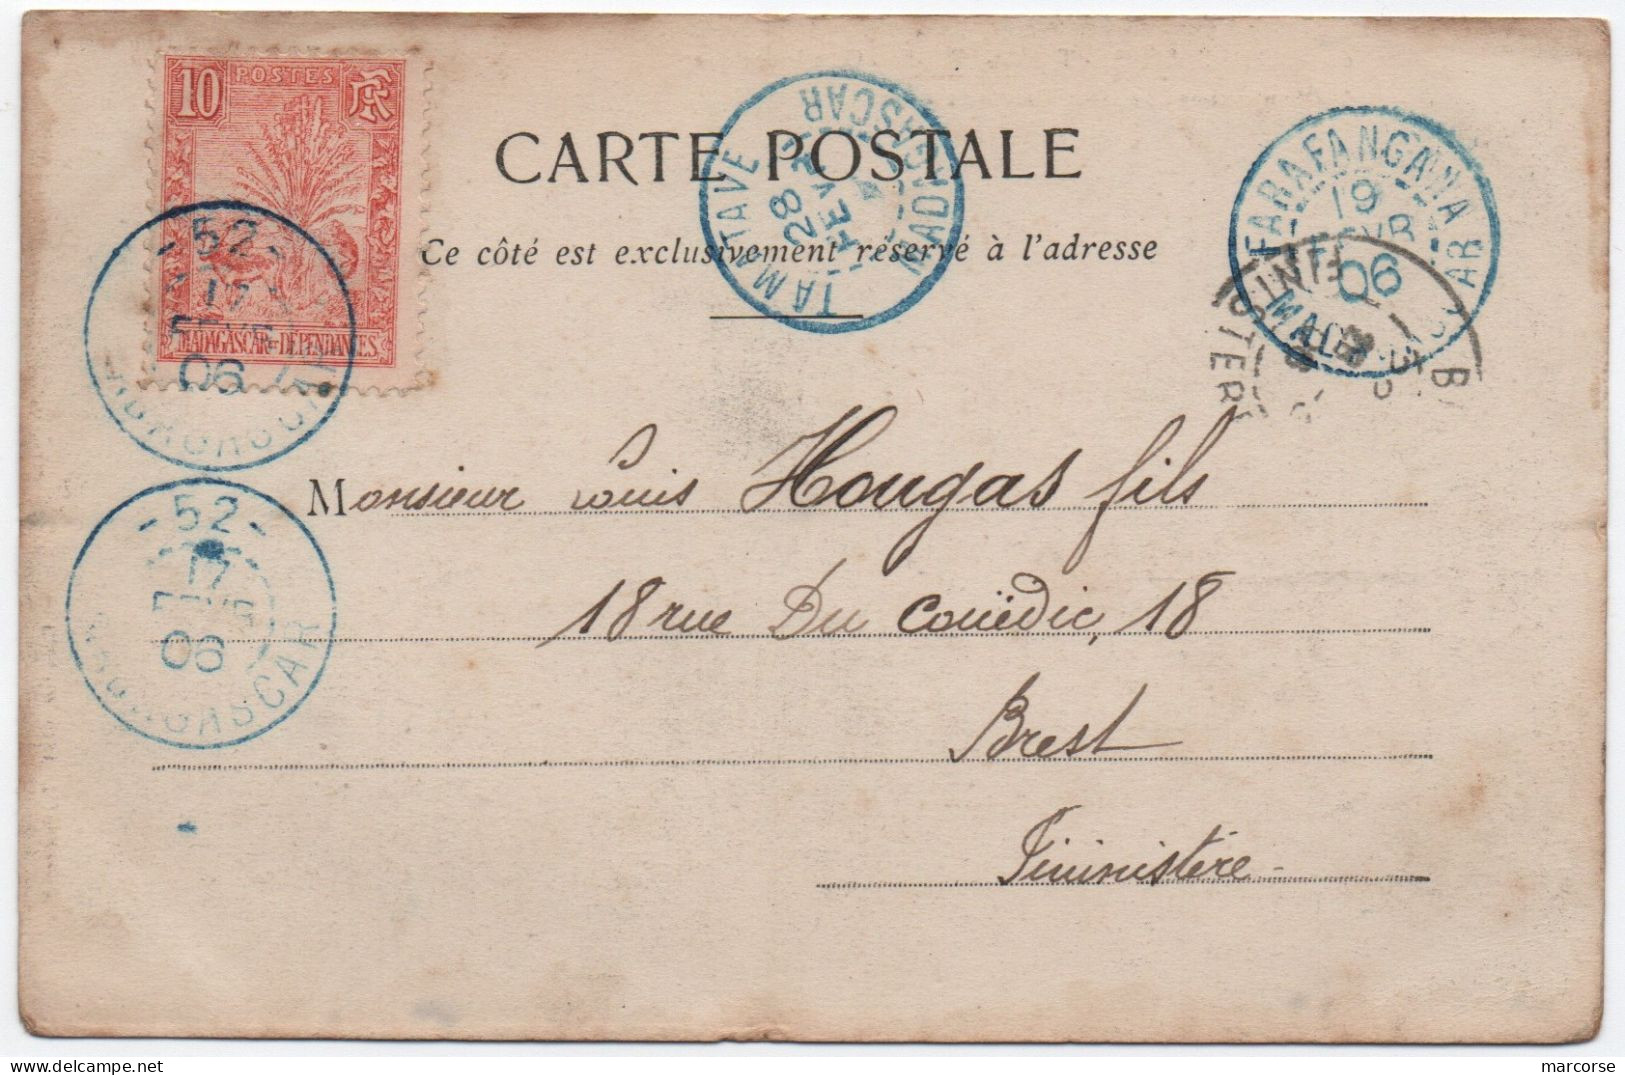 10 POSTES RF
MADAGASCAR=DÉPENDANCES
- 52 -
17
FEVR
06
MADAGASCAR
CARTE POSTALE
Ce côté est exclusivement réservé à l'adresse
TAMATAVE
28
FEVR
MADAGASCAR
FARAFANGANA
19
FEVR
06
MADAGASCAR
B
FINISTERE
Monsieur Louis Hougas fils
18 rue Du Couëdic, 18
Brest
Finistère
- 52 -
17
FEVR
06
MADAGASCAR
delcampe.net
marcorse